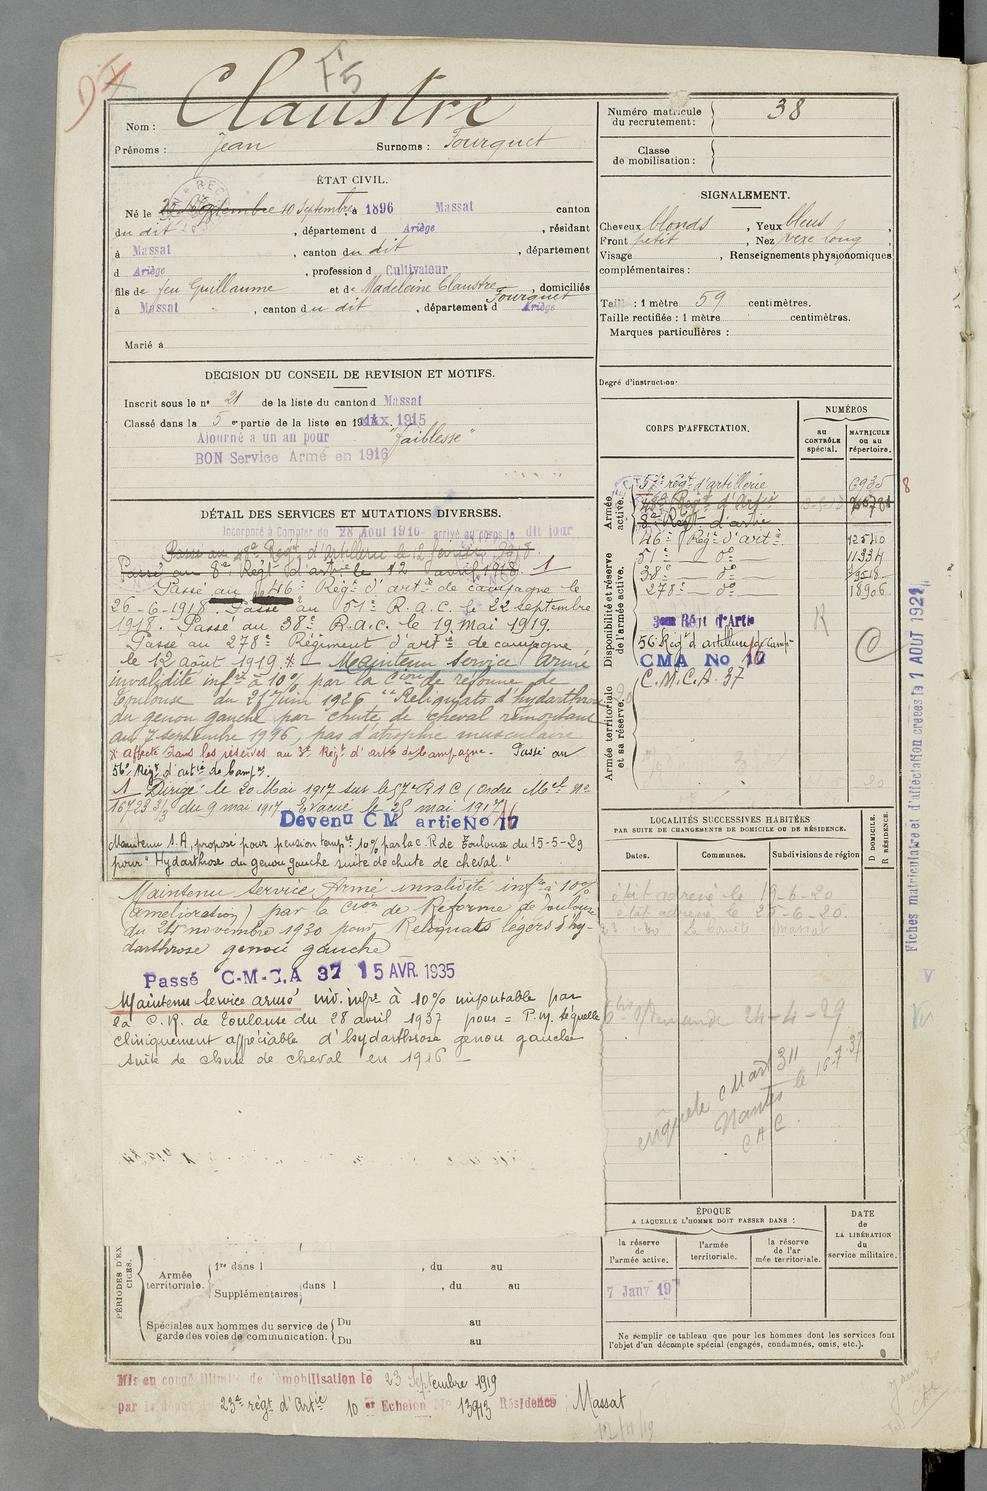 F5
Nom : Claustre
Prénoms : Jean Surnoms : Fourquet
ÉTAT CIVIL.
Né le 10 Septembre 1896 à Massat canton
du dit , départem​ent d Ariège , résidant
à Massat , canton du dit , département
d Ariège , profession d Cultivateur
fils de feu Guillaume et de Madeleine Claustre Fourquet , domiciliés
à Massat , canton du dit , département d Ariège
Marié à
DECISION DU CONSEIL DE REVISION ET MOTIFS.
Inscrit sous le n° 21 de la liste du canton d Massat
Classé dans la 5 e partie de la liste en 1915
Ajourné a un an pour "faiblesse"
BON Service Armé en 1916
DÉTAIL DES SERVICES ET MUTATIONS DIVERSES.
Incorporé à Compter du 28 Aout 1916 arrivé au corps le dit jour
Passé au 8e Régt d'artie le 12 avril 1918. 1
Passé au 46e Régt d'artie de campagne le
26-6-1918. Passé au 51e R.A.C. le 22 septembre
1918. Passé au 38e R.A.C. le 19 mai 1919.
Passé au 278e Régiment d'artie de campagne
le 12 Août 1919. * - Maintenu service armé
invalidité infre à 10% par la Cion de réforme de
Toulouse du 25 Juin 1926 "Reliquats d'hydarthrose
du genou gauche par chute de cheval remontant
au 7 septembre 1916, pas d'atrophie musculaire
* affecté dans les réserves au 3e Régt d'artie de Campagne. Passé au
56e Régt d'artie de Campe.
1 Dirigé le 20 Mai 1917 sur le 57e R A C (Ordre Mel No
16723 3/3 du 9 mai 1917. Evacué le 25 mai 1917
Devenu CM artie No 17 16
Maintenu S.A, proposé pour pension tempre 10% par la C.R de Toulouse du 15-5-29
pour "Hydarthose du genou gauche suite de chute de cheval."
Maintenu Service Armé invalidité infre à 10%
(amélioration) par la Cion de Réforme de Toulouse
du 24 novembre 1930 pour Reliquats légers d'hy-
darthrose genou gauche
Passé C-M-C.A 37 15 AVR. 1935
Maintenu Service armé inv. infre à 10% imputable par
la C.R. de Toulouse du 28 avril 1937 pour = P.M. séquelles
cliniquement appréciable d'hydarthrose genou gauche
suite de chute de cheval en 1916 -
PÉRIODES D'EX
CICES.
Armée territoriale. 1re dans l , du au
Supplémentaires dans l , du au
Spéciales aux hommes du service de garde des voies de communication. Du au
Du au
Mis en congé illimité de démobilisation le 23 Septembre 1919
par le dépot du 23e régt d'Artie 10 er Echelon No 13913 Résidence : Massat
12/11/19
Numéro matricule du recrutement : 38
Classe de mobilisation :
SIGNALEMENT.
Cheveux blonds , Yeux bleus ,
Front petit , Nez vexe long ,
Visage , Renseignements physionomiques
complémentaires :
Taille : 1 mètre 59 centimètres.
Taille rectifiée : 1 mètre centimètres.
Marques particulières :
Degré d'instruction.
CORPS D'AFFECTATION.
NUMÉROS
au CONTRÔLE spécial.
MATRICULE ou au répertoire.
Armée active.
57e régt d'artillerie 6935 8
8e Régt d'artie
46e Régt d'arte 12540
51e do 11334
38e do
278e do 18906
Disponibilité et réserve de l'armée active.
3eme Régt d'Artie
56e Régt d'artillerie de Campe
CMA No 17 16
C.M.C.A. 37
R
C
Armée territoriale et sa réserve.
Fiches matriculaire et d'affectation créées le 1 AOUT 1921
LOCALITÉS SUCCESSIVES HABITÉES
PAR SUITE DE CHANGEMENTS DE DOMICILE OU DE RÉSIDENCE.
Dates. Communes. Subdivisions de région D DOMICILE. R RÉSIDENCE.
état adressé le 19-6-20
etat adressé le 25-6-20.
Massat
demande 24-4-29
enquête C Mart 311
Nantes le 16-7-37
CAC
ÉPOQUE
A LAQUELLE L'HOMME DOIT PASSER DANS :
la réserve de l'armée active.
l'armée territoriale.
la réserve de l'ar mée territoriale.
DATE de LA LIBÉRATION du service militaire.
7 Janv 19
Ne remplir ce tableau que pour les hommes dont les services font
l'objet d'un décompte spécial (engagés, condamnés, omis, etc.).